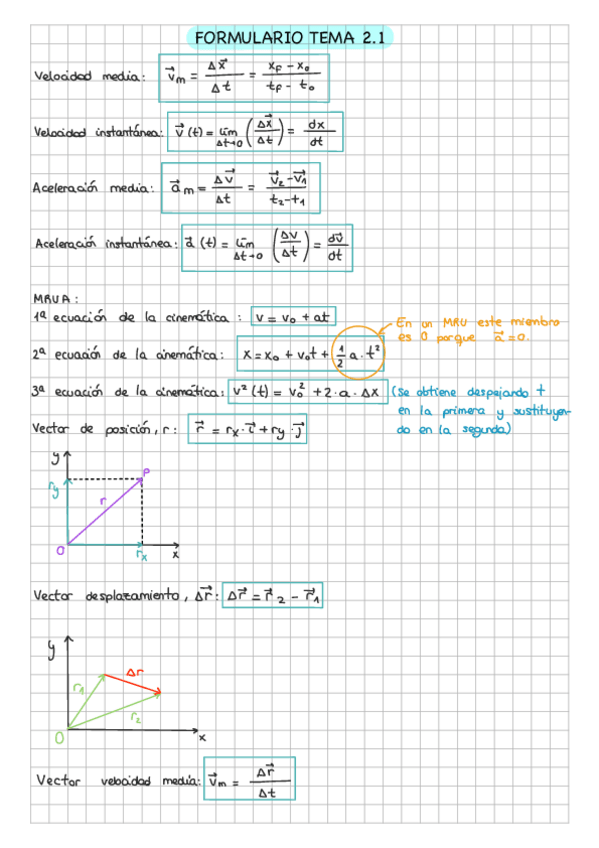 FORMULARIO TEMA 2.1
Velocidad media: v⃗m = Δx⃗/Δt = (xF - x0)/(tF - t0)
Velocidad instantánea: v⃗(t) = lím Δt→0 (Δx⃗/Δt) = dx/dt
Aceleración media: a⃗m = Δv⃗/Δt = (v⃗2 - v⃗1)/(t2 - t1)
Aceleración instantánea: a⃗(t) = lím Δt→0 (Δv/Δt) = dv⃗/dt
MRUA:
1ª ecuación de la cinemática: v = v0 + at
En un MRU este miembro
es 0 porque a⃗ = 0.
2ª ecuación de la cinemática: x = x0 + v0t + 1/2 a · t²
3ª ecuación de la cinemática: v²(t) = v0² + 2 · a · Δx (Se obtiene despejando t
en la primera y sustituyen-
do en la segunda)
Vector de posición, r: r⃗ = rx · i⃗ + ry · j⃗
y
ry
P
r
O
rx
x
Vector desplazamiento, Δr⃗: Δr⃗ = r⃗2 - r⃗1
y
Δr
r1
r2
O
x
Vector velocidad media: v⃗m = Δr⃗/Δt